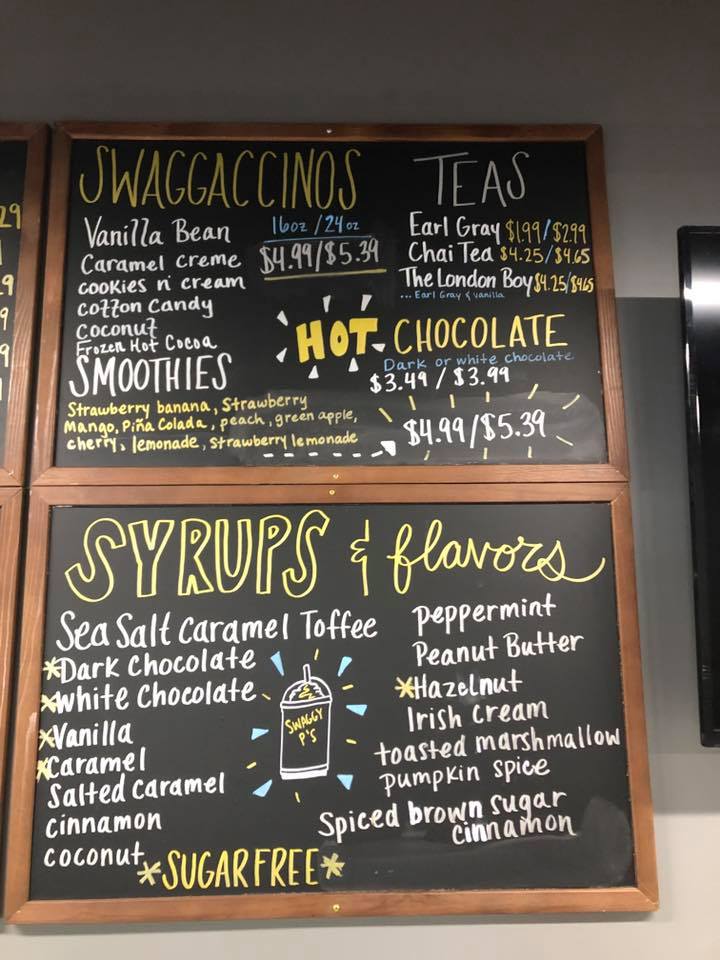 29
9
9
9
SWAGGACCINOS
Vanilla Bean
Caramel creme
cookies n' cream
cotton candy
Coconut
Frozen Hot Cocoa
16oz / 24oz
$4.99/$5.39
TEAS
Earl Gray $1.99/$2.99
Chai Tea $4.25/$4.65
The London Boy $4.25/$4.65
... Earl Gray & vanilla
HOT CHOCOLATE
Dark or white chocolate
$3.49 / $3.99
SMOOTHIES
Strawberry banana, Strawberry
Mango, Piña Colada, peach, green apple,
cherry, lemonade, Strawberry lemonade
$4.99/$5.39
SYRUPS & flavors
Sea Salt Caramel Toffee
*Dark Chocolate
*White Chocolate
*Vanilla
*Caramel
Salted Caramel
cinnamon
coconut
SWAGGY
P'S
Peppermint
Peanut Butter
*Hazelnut
Irish Cream
toasted marshmallow
pumpkin spice
Spiced brown sugar
cinnamon
*SUGAR FREE*